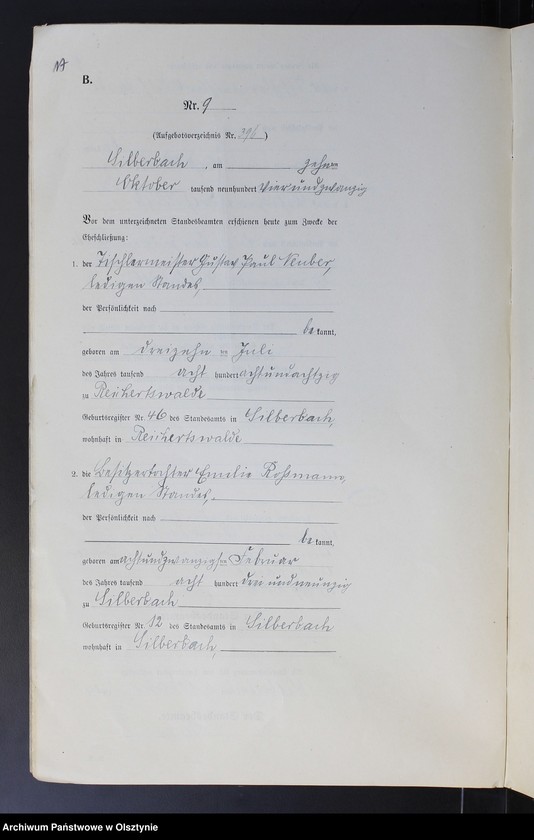 B.
Nr. 9
(Aufgebotsverzeichnis Nr. )
Silberbach, am zehnten
Oktober tausend neunhundert vierundzwanzig
Vor dem unterzeichneten Standesbeamten erschienen heute zum Zwecke der
Eheschließung:
1. der Tischlermeister Gustav Paul Neuber,
ledigen Standes,
der Persönlichkeit nach
bekannt,
geboren am dreizehnten Juli
des Jahres tausend acht hundert achtundachtzig
zu Reichertswalde
Geburtsregister Nr. 46 des Standesamts in Silberbach,
wohnhaft in Reichertswalde
2. die Besitzertochter Emilie Roßmann,
ledigen Standes,
der Persönlichkeit nach
bekannt,
geboren am achtundzwanzigsten Februar
des Jahres tausend acht hundert dreiundneunzig
zu Silberbach
Geburtsregister Nr. 12 des Standesamts in Silberbach
wohnhaft in Silberbach,
Archiwum Państwowe w Olsztynie